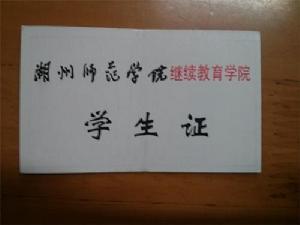 湖州师范学院继续教育学院
学生证